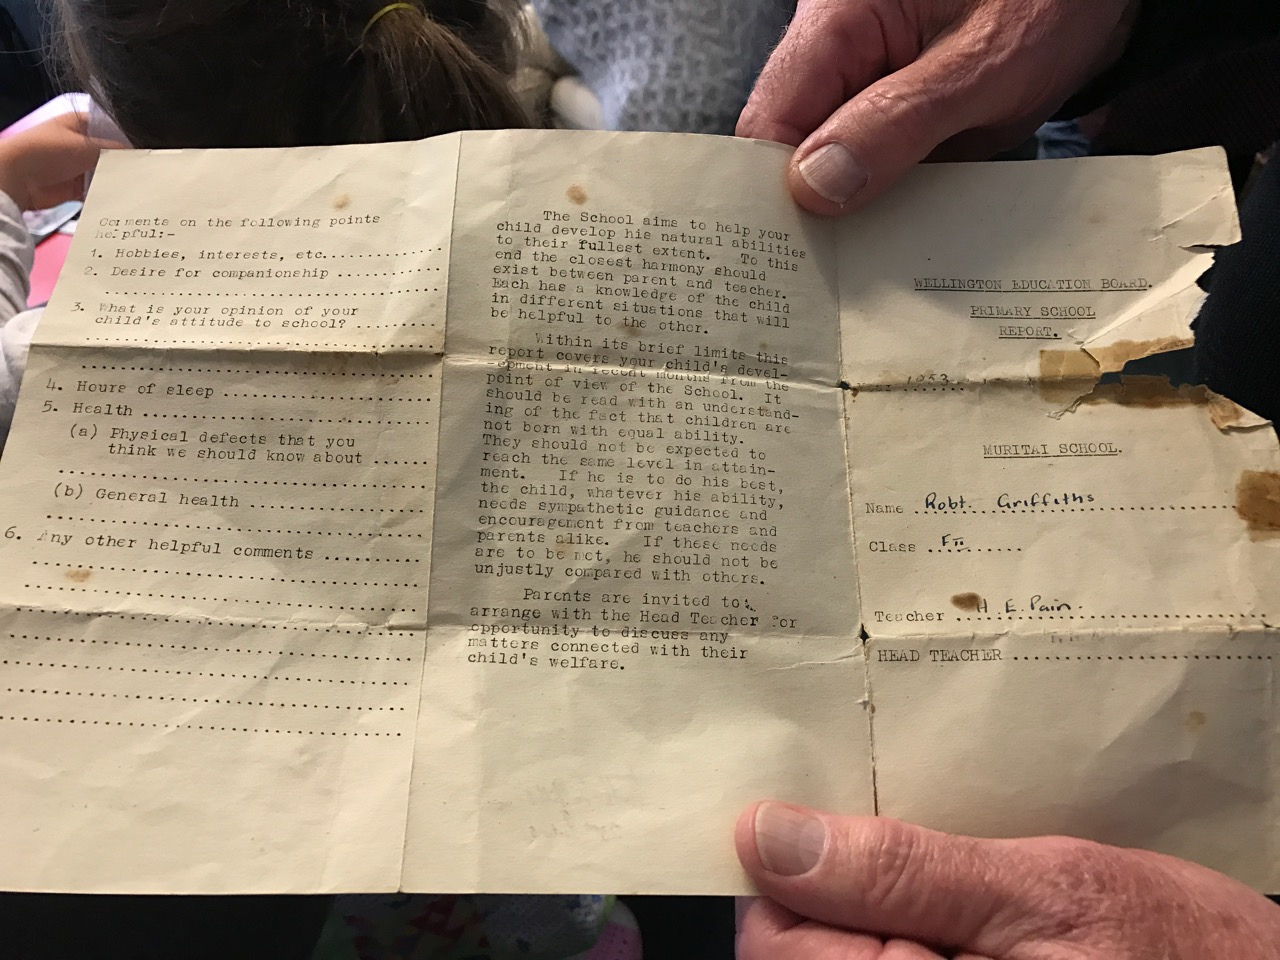 Comments on the following points
helpful:-
1. Hobbies, interests, etc..................
2. Desire for companionship ...............
3. What is your opinion of your
child's attitude to school? ..........
4. Hours of sleep ........................
5. Health ................................
(a) Physical defects that you
think we should know about ......
(b) General health ....................
6. Any other helpful comments ............
The School aims to help your
child develop his natural abilities
to their fullest extent. To this
end the closest harmony should
exist between parent and teacher.
Each has a knowledge of the child
in different situations that will
be helpful to the other.
Within its brief limits this
report covers your child's devel-
opment in recent months from the
point of view of the School. It
should be read with an understand-
ing of the fact that children are
not born with equal ability.
They should not be expected to
reach the same level in attain-
ment. If he is to do his best,
the child, whatever his ability,
needs sympathetic guidance and
encouragement from teachers and
parents alike. If these needs
are to be met, he should not be
unjustly compared with others.
Parents are invited to
arrange with the Head Teacher for
opportunity to discuss any
matters connected with their
child's welfare.
WELLINGTON EDUCATION BOARD.
PRIMARY SCHOOL
REPORT.
1953
MURITAI SCHOOL.
Name Robt. Griffiths
Class F II
Teacher H. E. Pain.
HEAD TEACHER ..............................